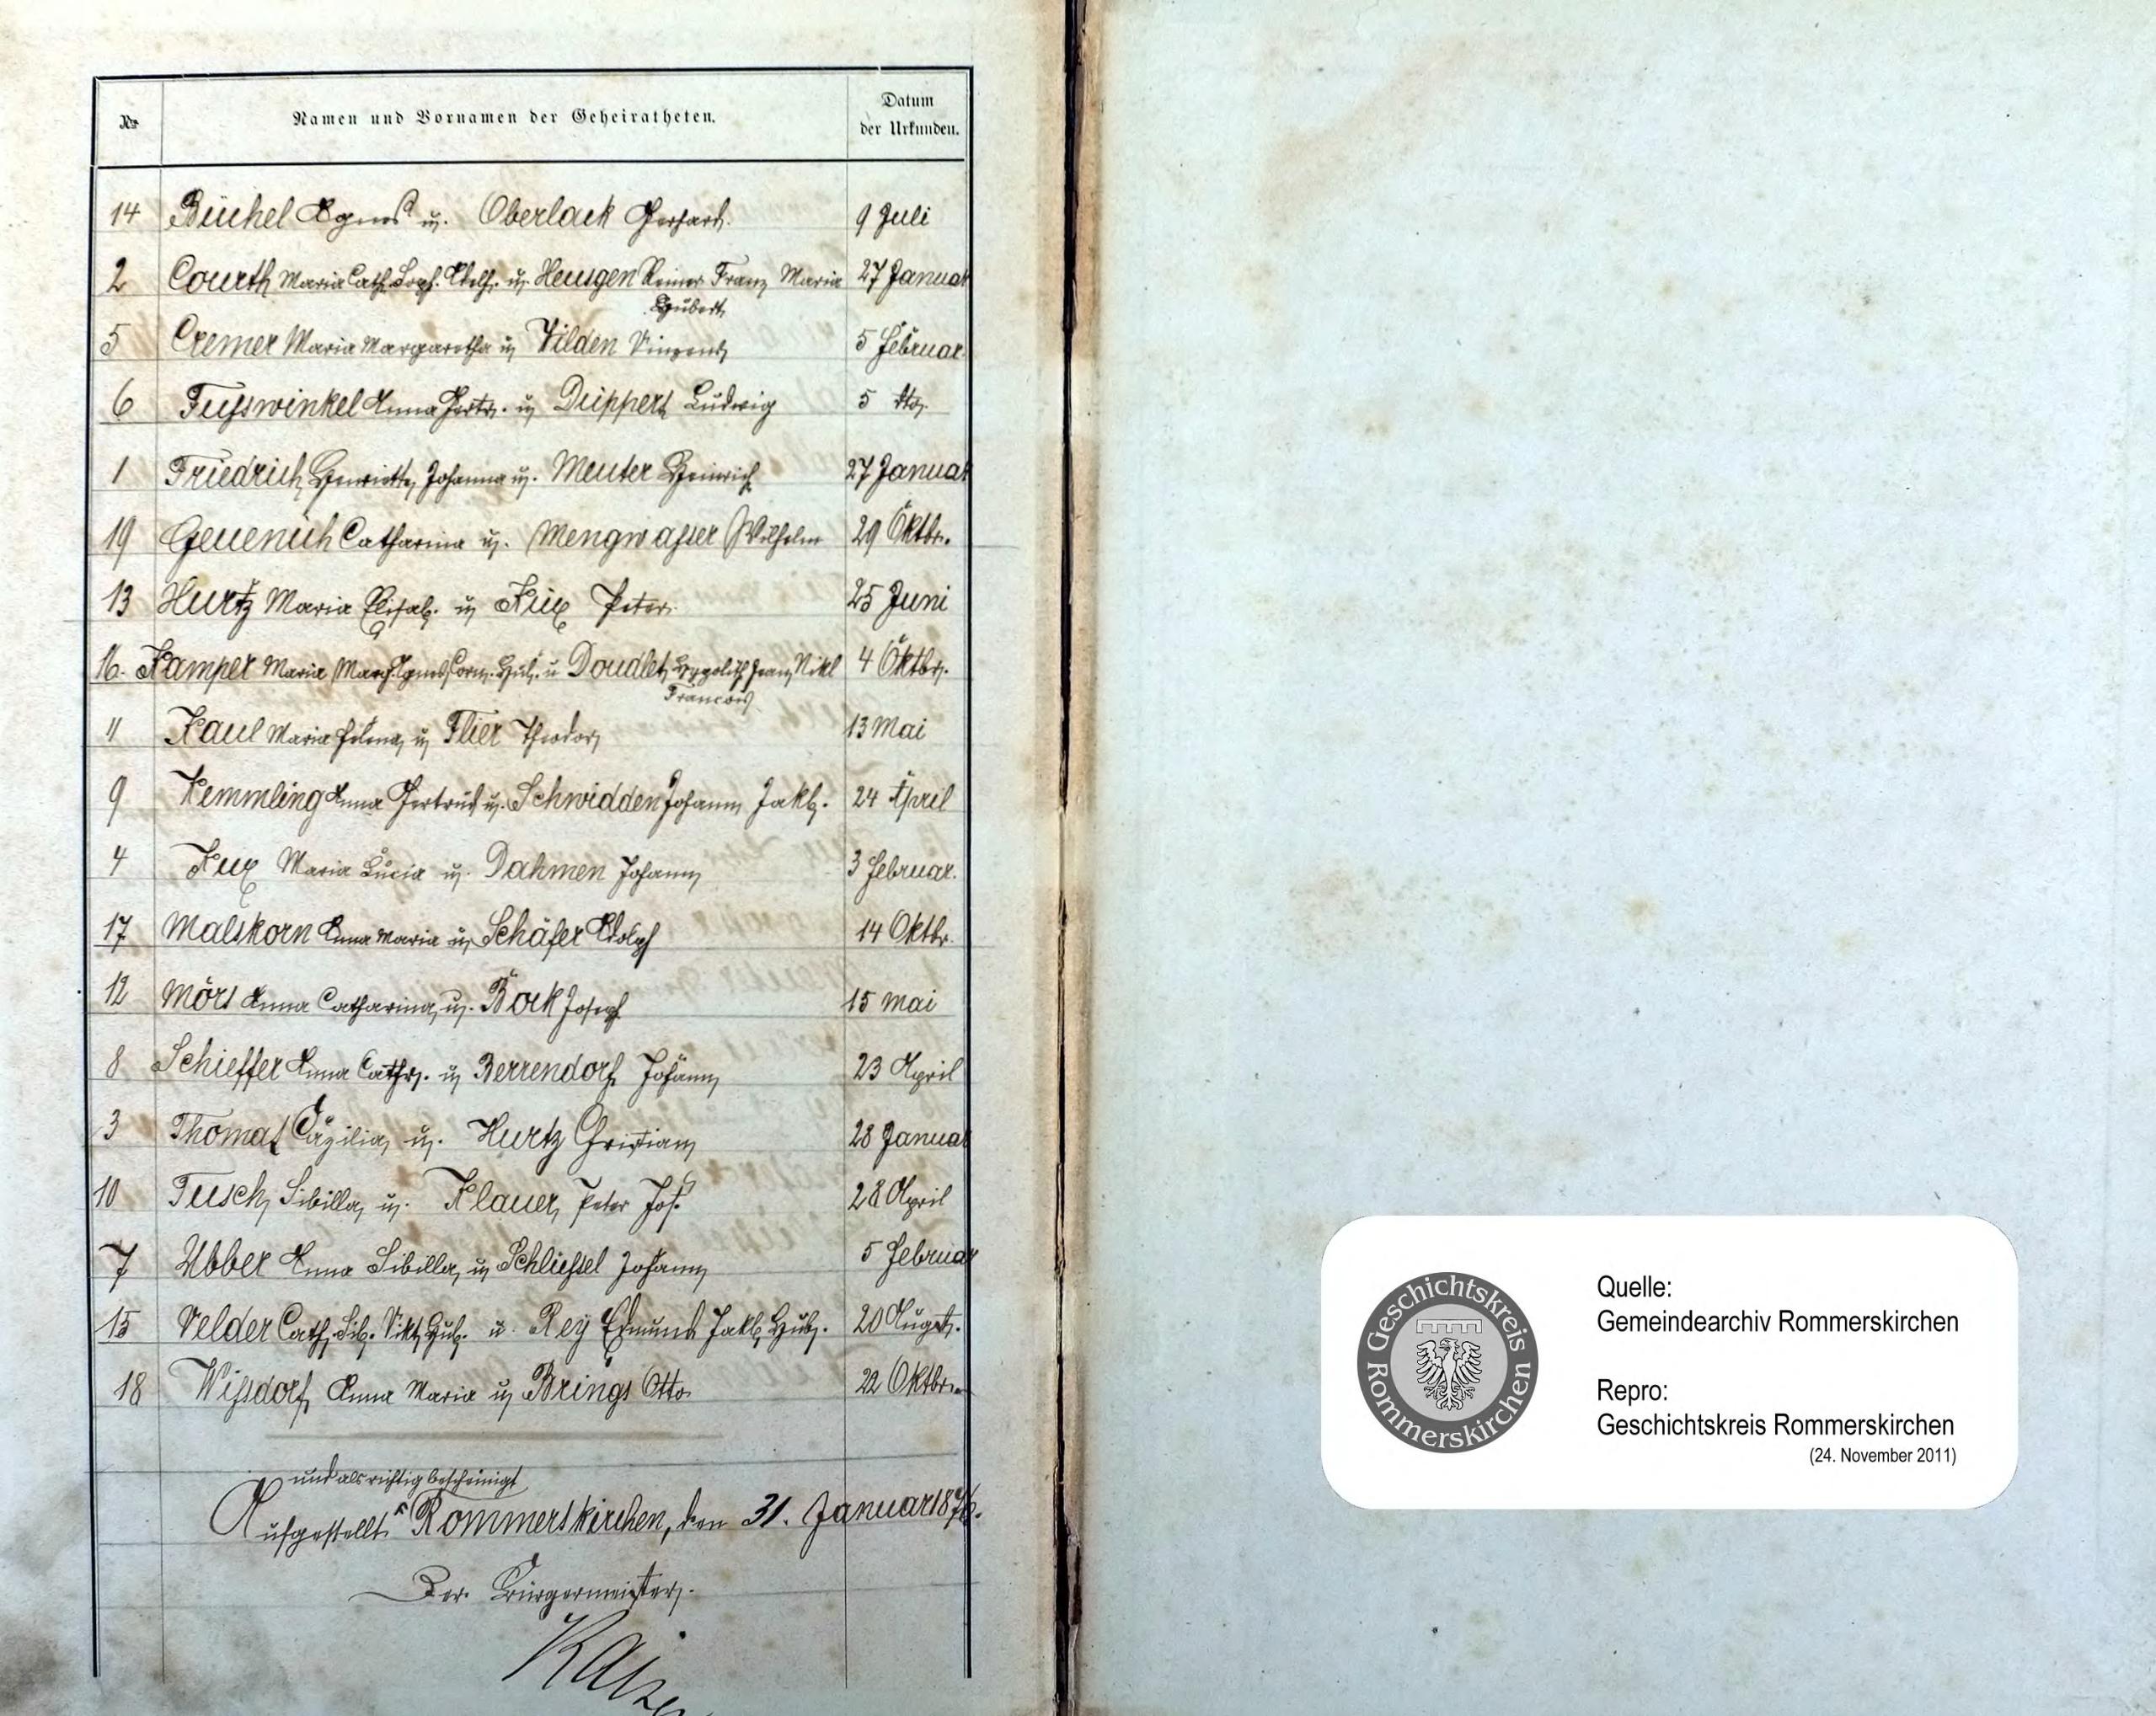 № Namen und Vornamen der Geheiratheten. Datum der Urkunden.
14 Büchel Agnes u. Oberlack Gerhard. 9 Juli
2 Courth Maria Cath. Adolf. u. Heusgen Reiner Franz Maria 27 Januar
Hubert
5 Cremer Maria Margaretha u. Vilden Vinzenz 5 Februar.
6 Fußwinkel Anna Gertr. u. Deippert Ludwig 5 dto.
1 Friedrich Henriette Johanna u. Meuter Heinrich 27 Januar
19 Geuenich Catharina u. Mengwasser Wilhelm 29 Oktbr.
13 Hurtz Maria Elisab. u. Kux Peter. 25 Juni
16. Kamper Maria Marg. Agnes Corn. Hub. u. Doudlet Hyppolith Jean Nikl 4 Oktbr.
Francois
11 Kaul Maria Helena u. Flier Theodor 13 Mai
9 Kemmling Anna Gertrud u. Schwidden Johann Jakb. 24 April
4 Kux Maria Lucia u. Dahmen Johann 3 Februar.
17 Malskorn Anna Maria u. Schäfer Adolph 14 Oktbr.
12 Mörs Anna Catharina u. Bock Joseph 15 Mai
8 Schieffer Anna Cathr. u. Berrendorf Johann 23 April
3 Thomas Cäzilia u. Hurtz Christian 28 Januar
10 Tusch Sibilla u. Klauer Peter Jos. 28 April
7 Ubber Anna Sibilla u. Schlüssel Johann 5 Februar
15 Velder Cath. Sib. Vikt. Hub. u. Rey Edmund Jakb. Hub. 20 Augst.
18 Wißdorf Anna Maria u. Brings Otto 22 Oktbr.
und als richtig bescheinigt
Aufgestellt Rommerskirchen, den 31. Januar 1876.
Der Bürgermeister.
Geschichtskreis Rommerskirchen
Quelle:
Gemeindearchiv Rommerskirchen
Repro:
Geschichtskreis Rommerskirchen
(24. November 2011)